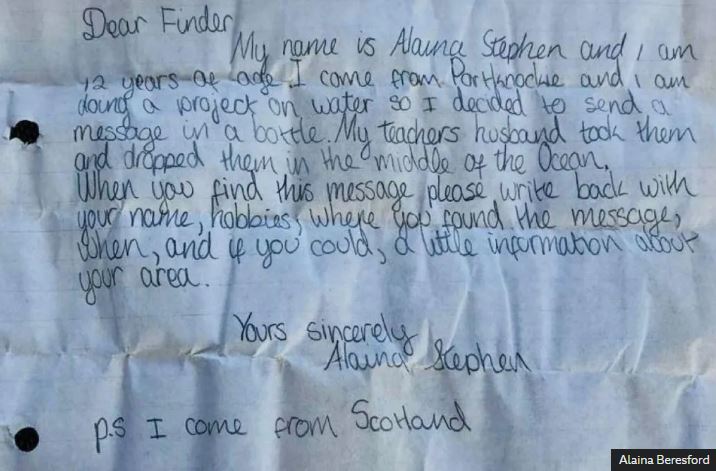 Dear Finder
My name is Alaina Stephen and i am
12 years of age I come from Portknockie and i am
doing a project on water so I decided to send a
message in a bottle. My teachers husband took them
and dropped them in the middle of the Ocean.
When you find this message please write back with
your name, hobbies, where you found the message,
when, and if you could, a little information about
your area.
Yours sincerely
Alaina Stephen
p.s I come from Scotland
Alaina Beresford